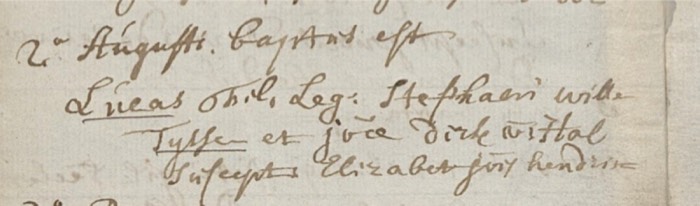 2a Augusti. baptus est
Lucas fil. Leg: Stephani wille
Tysse et joce Dirk
Suscept Elizabet jois hendri